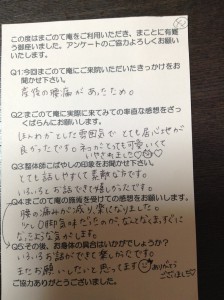 この度はまごのて庵をご利用いただき、まことに有難
う御座いました。アンケートのご協力よろしくお願い
いたします。
Q1:今回まごのて庵にご来院いただいたきっかけをお
聞かせ下さい。
産後の腰痛があったため。
Q2:まごのて庵に実際に来てみての率直な感想をざっ
くばらんにお願いいたします。
ほんわかとした雰囲気で とても居心地が
良かったです。ネコがとっても可愛いくて
いやされました♡
Q3:整体師こばやしの印象をお聞かせ下さい。
とても話しやすく素敵な方です。
いろいろとお話できて嬉しかったです。
Q4:まごのて庵の施術を受けての感想をお願いします。
腰の痛みが減り、楽になりました。
少しO脚気味なので、なんとなくまっすぐに
なったような気がします。
Q5:その後、お身体の具合はいかがでしょうか?
いろいろお話ができて楽しかったです。
またお願いしたいと思ってます ありがとう
ございました
ご協力ありがとうございました。